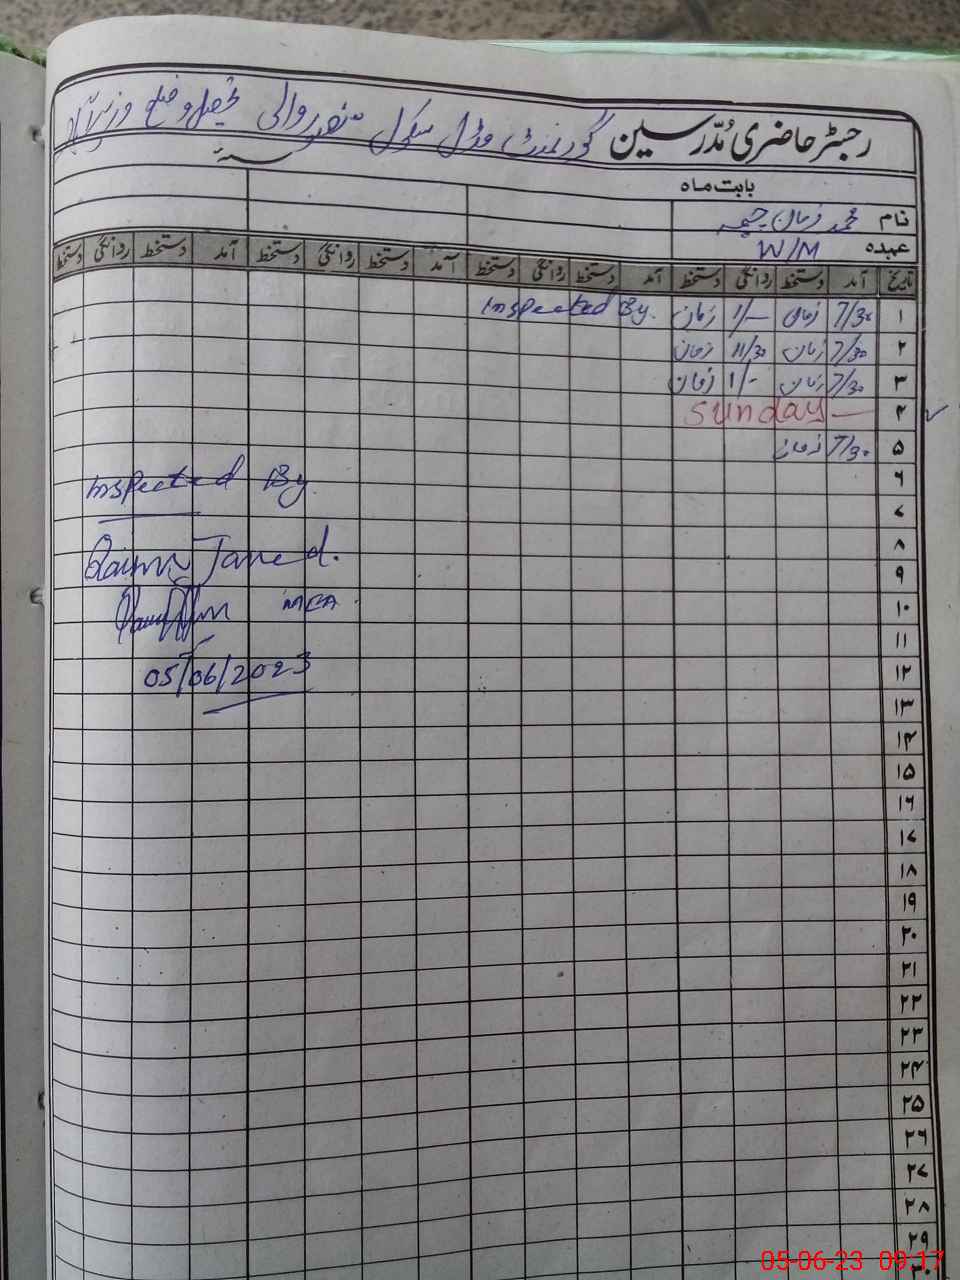 رجسٹر حاضری مُدّرسین گورنمنٹ مڈل سکول والی تحصیل و ضلع وزیرآباد
بابت ماہ
نام محمد زمان چیمہ
عہدہ W/M
تاریخ آمد دستخط روانگی دستخط آمد دستخط روانگی دستخط آمد دستخط روانگی دستخط آمد دستخط روانگی دستخط
۱ 7/30 زمان 1/- زمان Inspected By.
۲ 7/30 زمان 11/30 زمان
۳ 7/30 زمان 1/- زمان
۴ Sunday
۵ 7/30 زمان
۶
Inspected By
۷
۸
Javed.
۹
۱۰
MEA
۱۱
۱۲
05/06/2023
۱۳
۱۴
۱۵
۱۶
۱۷
۱۸
۱۹
۲۰
۲۱
۲۲
۲۳
۲۴
۲۵
۲۶
۲۷
۲۸
۲۹
۳۰
05-06-23 09:17